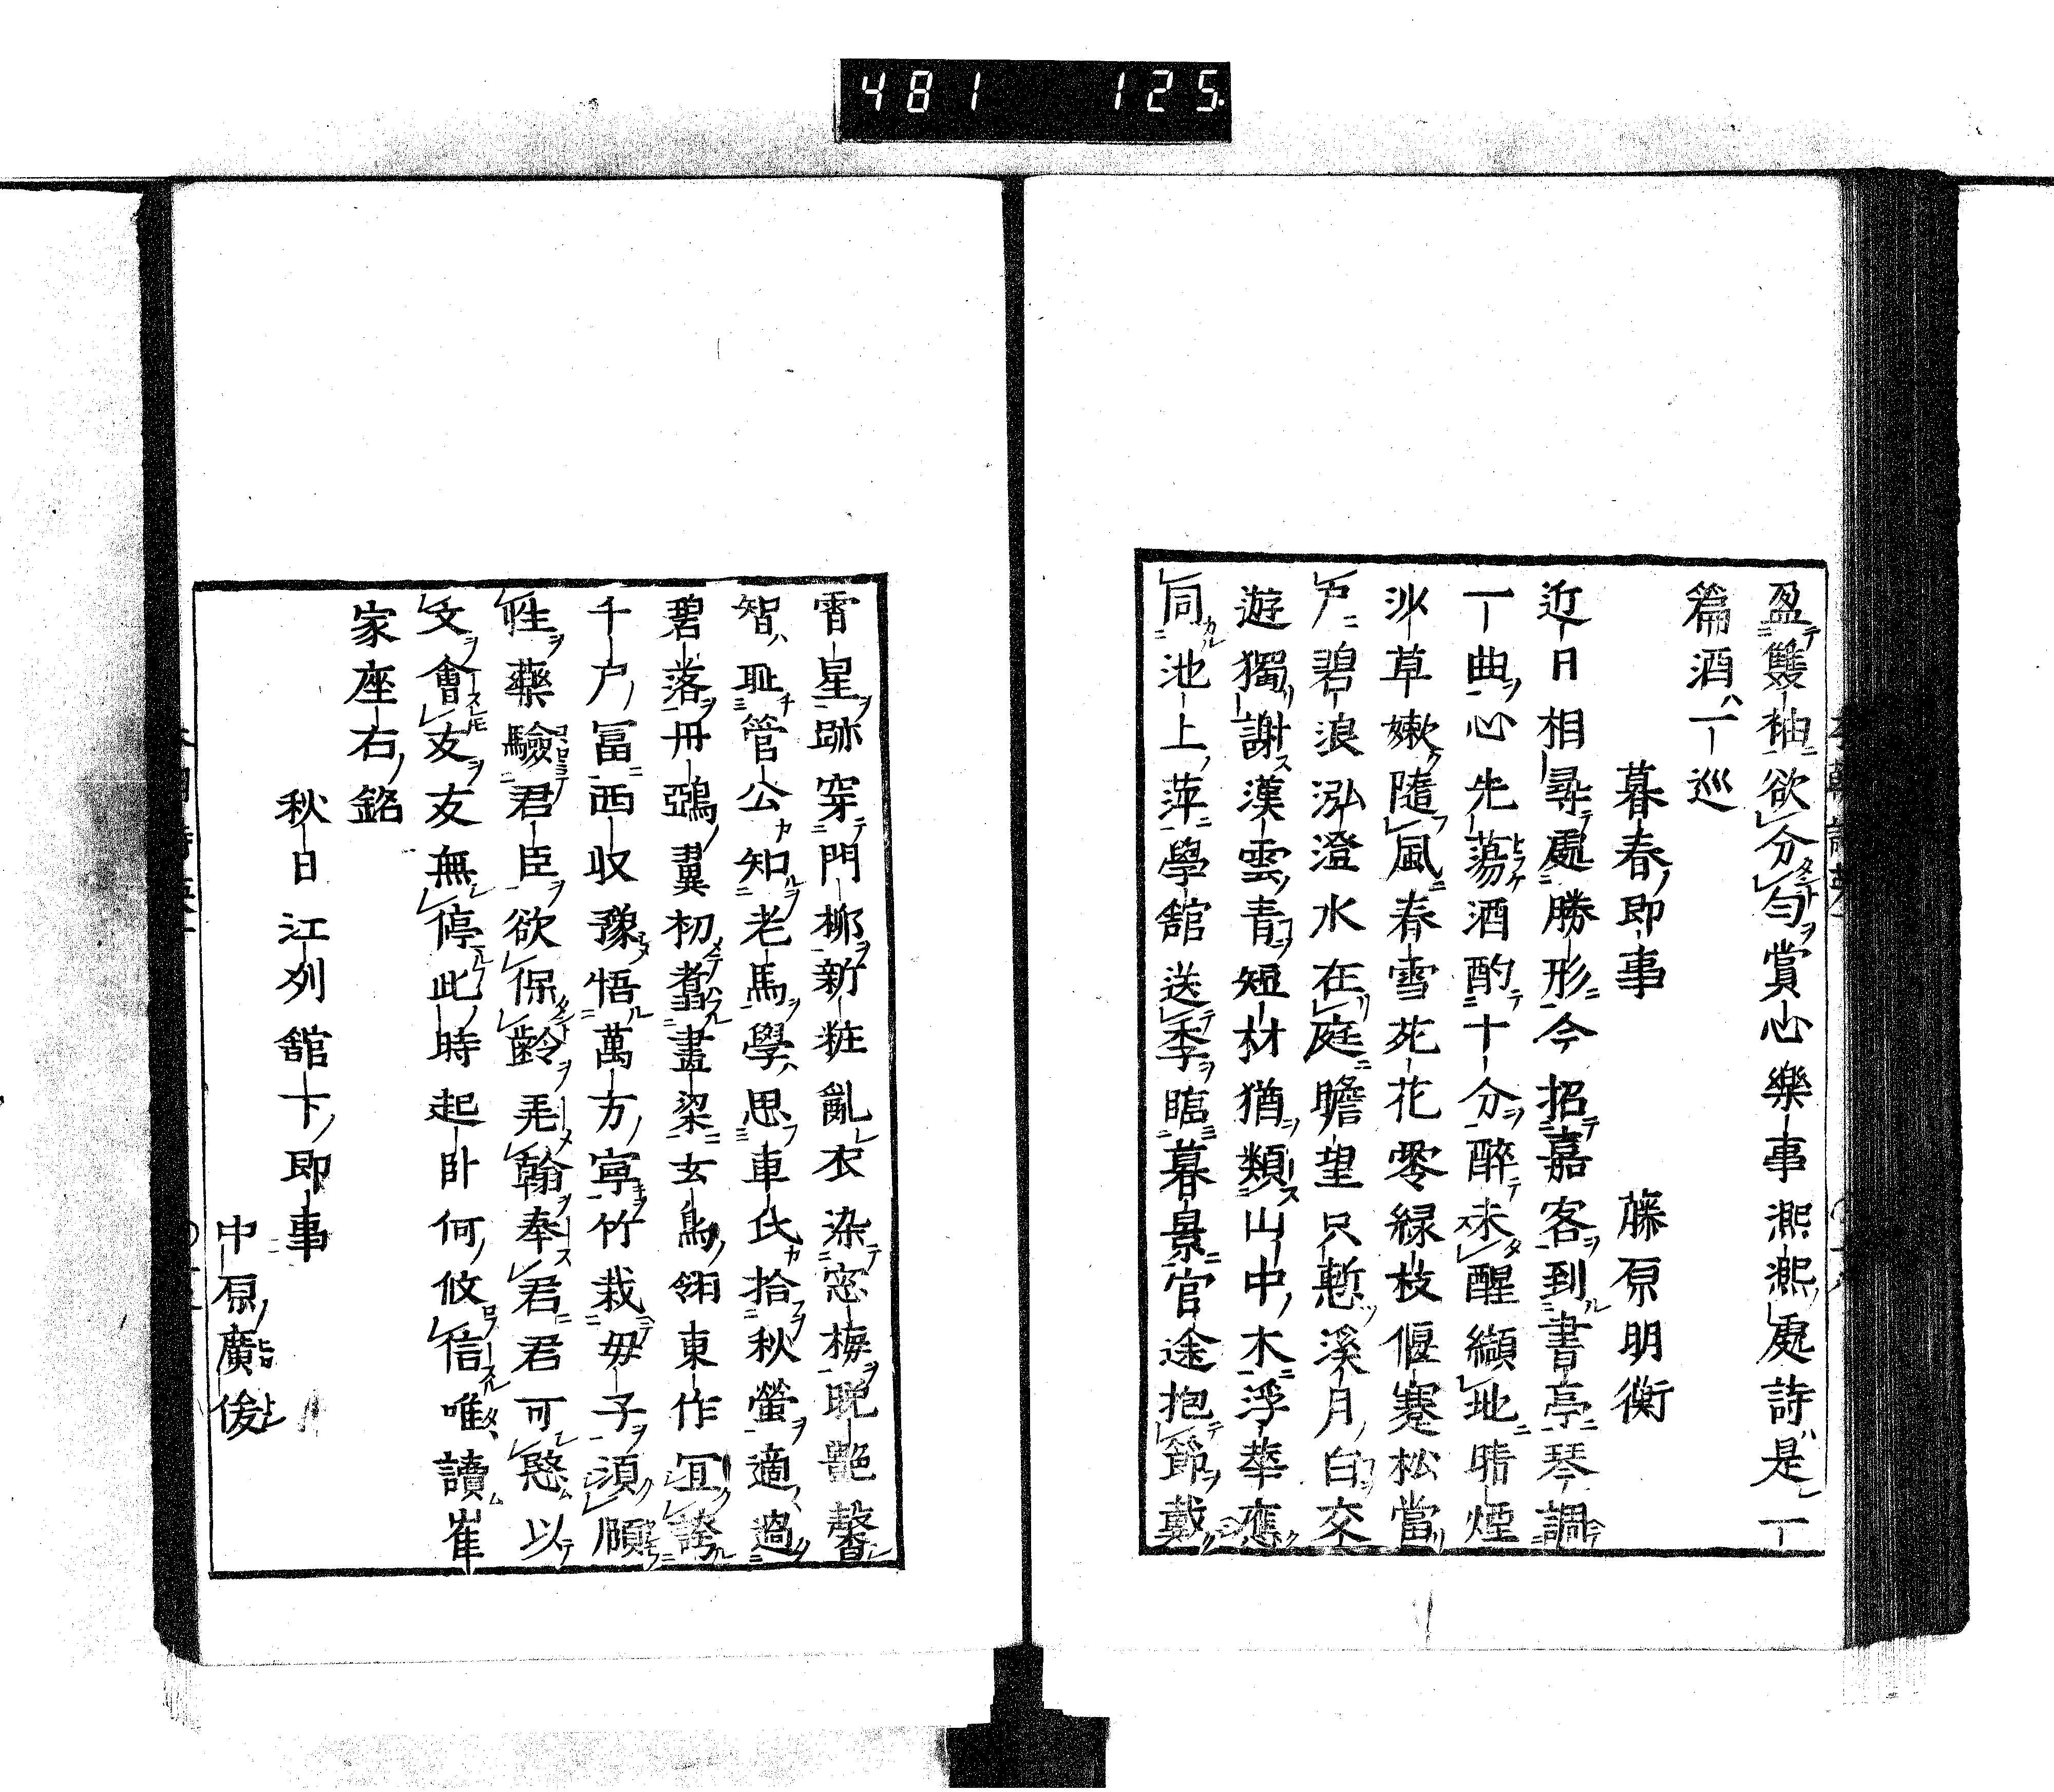 481 125
盈雙袖欲分匂賞心樂事凞凞處詩是一
篇酒一巡
暮春即事 藤原明衡
近日相尋處勝形今招嘉客到書亭琴調
一曲心先蕩酒酌十分醉未醒纈地晴煙
沙草嫩隨風春雪苑花零緑枝偃蹇松當
戸碧浪泓澄水在庭瞻望只慙溪月白交
遊獨謝漢雲青短材猶類山中木浮華應
同池上萍學舘送季臨暮景官途抱節戴
霄星跡穿門柳新粧亂衣染窓梅晚艶馨
智耻管公知老馬學思車氏拾秋螢適過
碧落丹鵶翼初翥畫梁玄鳥翎東作冝誇
千戸冨西收豫悟萬方寧竹栽毋子須願
性藥驗君臣欲保齡毛翰奉君君可愍以
文會友友無停此時起卧何攸信唯讀崔
家座右銘
秋日江州舘下即事
中原廣俊